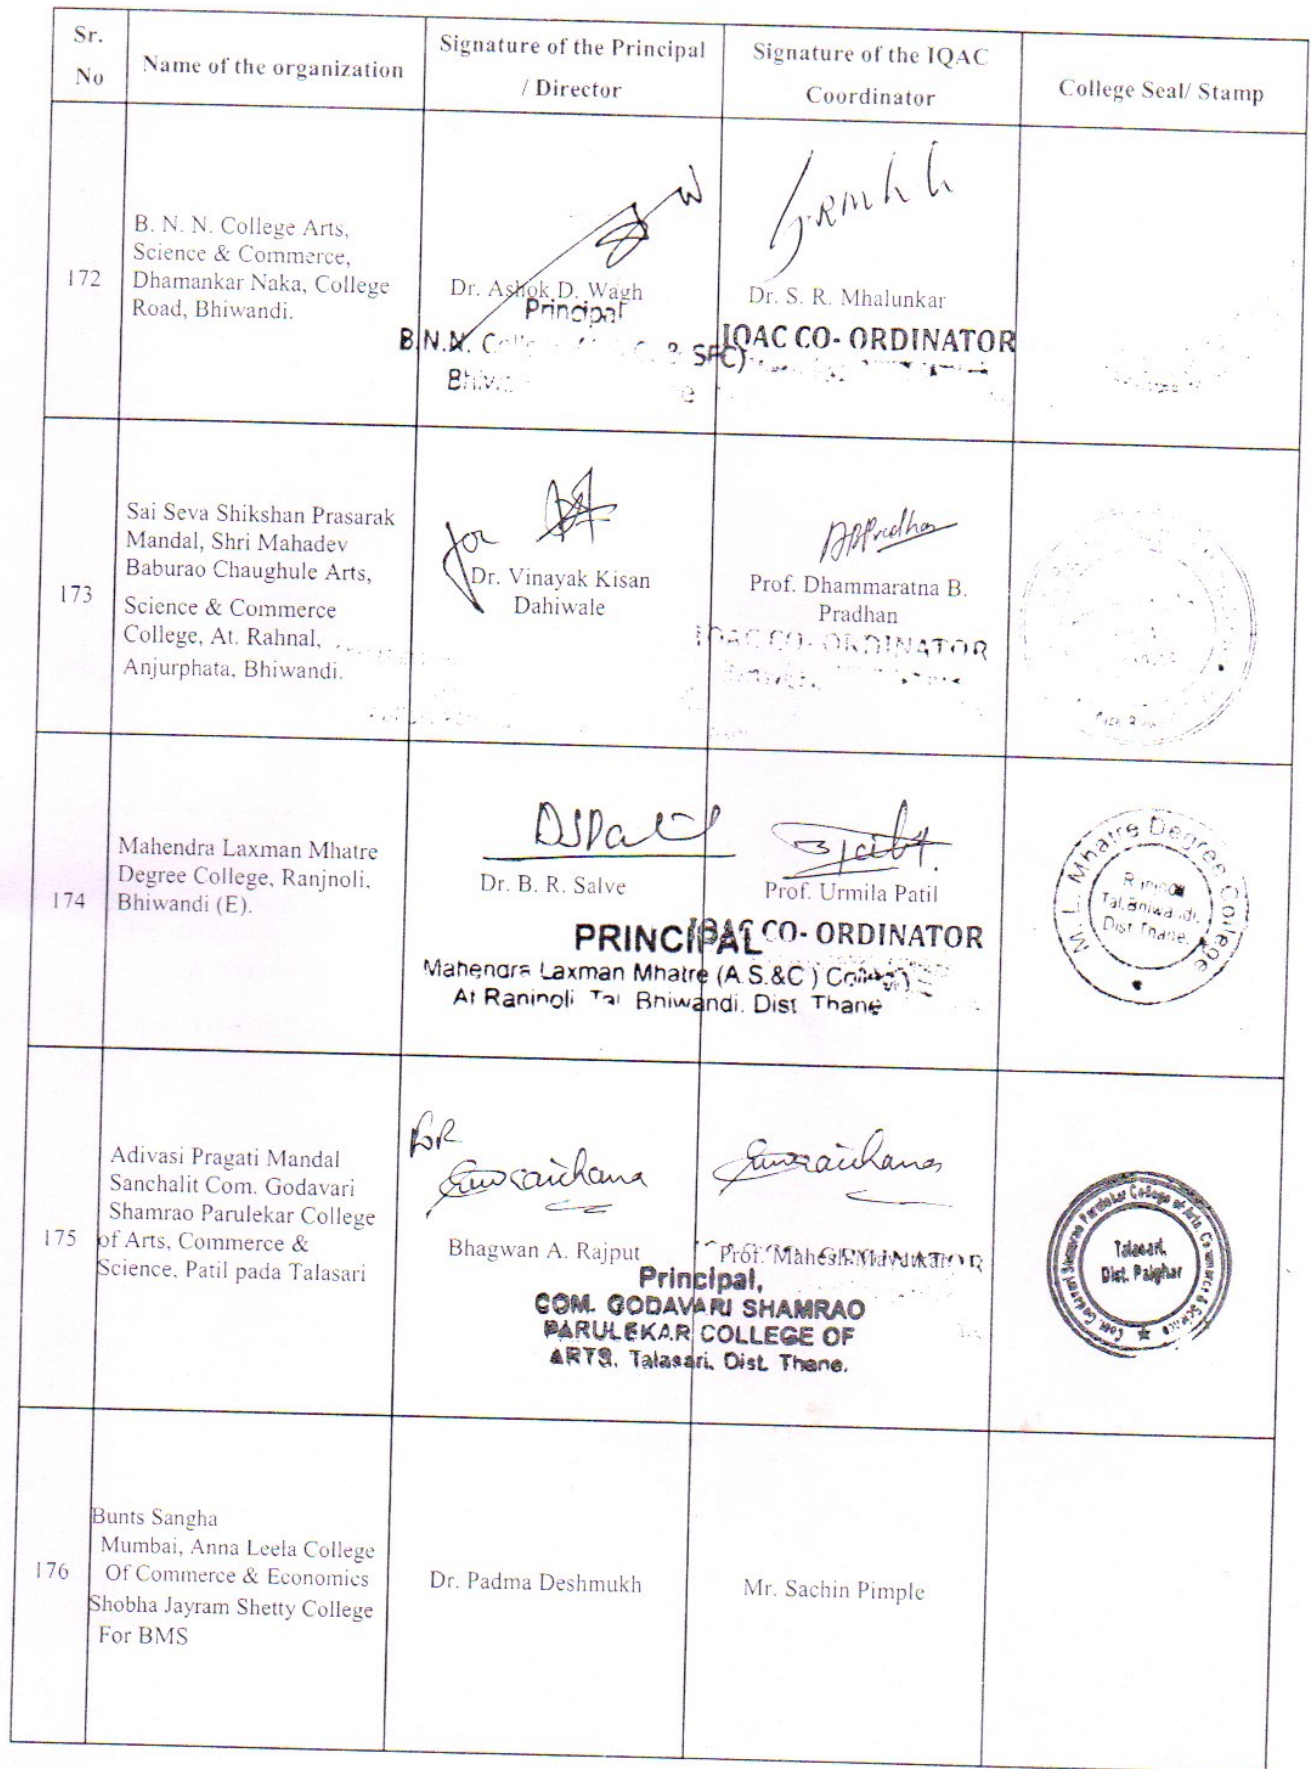 Sr.
No
Name of the organization
Signature of the Principal
/ Director
Signature of the IQAC
Coordinator
College Seal/ Stamp
172
B. N. N. College Arts,
Science & Commerce,
Dhamankar Naka, College
Road, Bhiwandi.
Dr. Ashok D. Wagh
Principal
B.N.N.
SFC)
Dr. S. R. Mhalunkar
IQAC CO- ORDINATOR
173
Sai Seva Shikshan Prasarak
Mandal, Shri Mahadev
Baburao Chaughule Arts,
Science & Commerce
College, At. Rahnal,
Anjurphata, Bhiwandi.
for
Dr. Vinayak Kisan
Dahiwale
Prof. Dhammaratna B.
Pradhan
IQAC CO- ORDINATOR
174
Mahendra Laxman Mhatre
Degree College, Ranjnoli,
Bhiwandi (E).
Dr. B. R. Salve
PRINCIPAL
Mahendra Laxman Mhatre (A.S.&C ) College
At Ranjnoli Tal Bhiwandi. Dist Thane
Prof. Urmila Patil
IQAC CO- ORDINATOR
M. L. Mhatre Degree College
Ranjnoli
Tal. Bhiwandi.
Dist Thane.
175
Adivasi Pragati Mandal
Sanchalit Com. Godavari
Shamrao Parulekar College
of Arts, Commerce &
Science, Patil pada Talasari
For
Bhagwan A. Rajput
Principal,
COM. GODAVARI SHAMRAO
PARULEKAR COLLEGE OF
ARTS, Talasari. Dist. Thane.
Prof. Mahesh
Com. Godavari Shamrao Parulekar College of Arts, Commerce & Science
Talasari,
Dist. Palghar
176
Bunts Sangha
Mumbai, Anna Leela College
Of Commerce & Economics
Shobha Jayram Shetty College
For BMS
Dr. Padma Deshmukh
Mr. Sachin Pimple